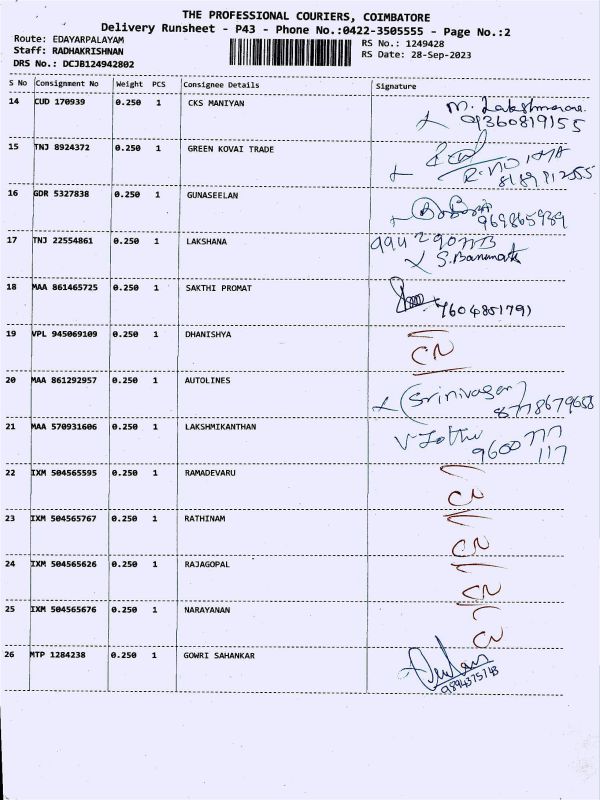 THE PROFESSIONAL COURIERS, COIMBATORE
Delivery Runsheet - P43 - Phone No.:0422-3505555 - Page No.:2
Route: EDAYARPALAYAM
RS No.: 1249428
Staff: RADHAKRISHNAN
RS Date: 28-Sep-2023
DRS No.: DCJB124942802
S No Consignment No Weight PCS Consignee Details Signature
14 CUD 170939 0.250 1 CKS MANIYAN
9360819155
15 TNJ 8924372 0.250 1 GREEN KOVAI TRADE
16 GDR 5327838 0.250 1 GUNASEELAN
969865939
17 TNJ 22554861 0.250 1 LAKSHANA
S.Banumathi
18 MAA 861465725 0.250 1 SAKTHI PROMAT
7604851791
19 VPL 945069109 0.250 1 DHANISHYA
CN
20 MAA 861292957 0.250 1 AUTOLINES
(Srinivasan)
8778679658
21 MAA 570931606 0.250 1 LAKSHMIKANTHAN
9600 777
117
22 IXM 504565595 0.250 1 RAMADEVARU
CN
23 IXM 504565767 0.250 1 RATHINAM
CN
24 IXM 504565626 0.250 1 RAJAGOPAL
CN
25 IXM 504565676 0.250 1 NARAYANAN
CN
26 MTP 1284238 0.250 1 GOWRI SAHANKAR
9894375743